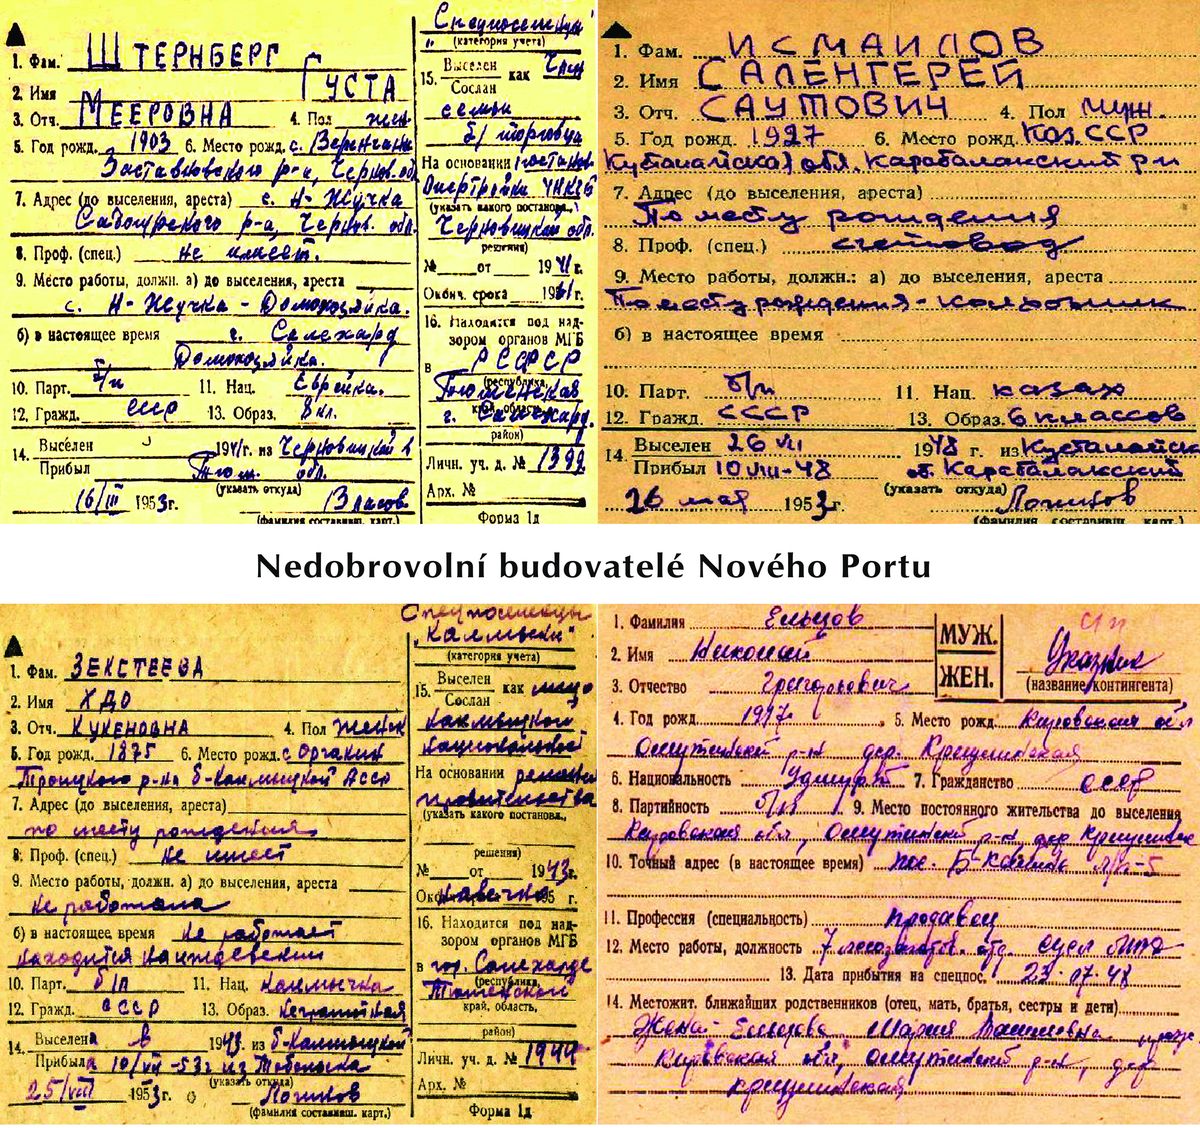 1. Фам. ШТЕРНБЕРГ
2. Имя ГУСТА
3. Отч. МЕЕРОВНА 4. Пол жен
5. Год рожд. 1903 6. Место рожд. с. Веренчанк
Заставновского р-а, Чернов. обл
7. Адрес (до выселения, ареста) с. Н-Жучка
Садгурского р-а, Чернов. обл.
8. Проф. (спец.) не имеет.
9. Место работы, должн. а) до выселения, ареста
с. Н-Жучка - Домохозяйка.
б) в настоящее время г. Салехард
Домохозяйка.
10. Парт. б/п 11. Нац. Еврейка.
12. Гражд. СССР 13. Образ. 8 кл.
14. Выселен 1941г. из Черновицкой в
Прибыл Тюм. обл.
(указать откуда)
16/III 1953г. Власов
(фамилия составивш. карт.)
Спецпоселенцы
(категория учета)
15. Выселен как член
Сослан
семьи
б/ торговца
На основании постанов
Опертройки УНКГБ
(указать какого постановл.,
Черновицкой обл.
решения)
№ от 1941г.
Оконч. срока 1961г.
16. Находится под над-
зором органов МГБ
в РСФСР
(республика,
Тюменская
край, область,
г. Салехард.
район)
Личн. уч. д. № 1399
Арх. №
Форма 1д
1. Фам. ИСМАИЛОВ
2. Имя САЛЕНГЕРЕЙ
3. Отч. САУТОВИЧ 4. Пол муж.
5. Год рожд. 1927 6. Место рожд. Каз. ССР
обл. Карабалакский р-н
7. Адрес (до выселения, ареста)
По месту рождения
8. Проф. (спец.) счетовод
9. Место работы, должн.: а) до выселения, ареста
По месту рождения - колхозник
б) в настоящее время
10. Парт. б/п 11. Нац. казах
12. Гражд. СССР 13. Образ. 6 классов
14. Выселен 26 VI 1948 г. из
Прибыл 10/VII-48 Карабалакский
(указать откуда)
26 мая 1953г. Логинов
(фамилия составивш. карт.)
Nedobrovolní budovatelé Nového Portu
1. Фам. ЗЕКСТЕЕВА
2. Имя ХДО
3. Отч. КУКЕНОВНА 4. Пол женск
5. Год рожд. 1875 6. Место рожд. с Оргакин
Троицкого р-на б-Калмыцкой АССР
7. Адрес (до выселения, ареста)
по месту рождения
8. Проф. (спец.) не имеет
9. Место работы, должн. а) до выселения, ареста
не работала
б) в настоящее время не работает
находится на иждевении
10. Парт. б/п 11. Нац. калмычка
12. Гражд. СССР 13. Образ. неграмотная
14. Выселена в 1943г. из б-Калмыцкой
Прибыла 10/VII-53г из Тобольска
(указать откуда)
25/VIII 1953г. Логинов
(фамилия составивш. карт.)
Спецпоселенцы
"Калмыки"
(категория учета)
15. Выселен как лицо
Сослан
калмыцкой
национальности
На основании решения
правительства
(указать какого постановл.,
решения)
№ от 1943г.
навечно
16. Находится под над-
зором органов МГБ
в гор. Салехарде
(республика,
Тюменской
край, область,
район)
Личн. уч. д. № 1944
Арх. №
Форма 1д
1. Фамилия Ельцов
2. Имя Николай
3. Отчество Григорьевич
МУЖ.
ЖЕН.
сп
Указник
(название контингента)
4. Год рожд. 1927. 5. Место рожд. Кировская обл
Омутнинский р-н дер.
6. Национальность Удмурт 7. Гражданство СССР
8. Партийность б/п 9. Место постоянного жительства до выселения
Кировская обл, Омутнинский р-н, дер
10. Точный адрес (в настоящее время) пос.
11. Профессия (специальность) продавец
12. Место работы, должность 7
13. Дата прибытия на спецпос. 23.07.48
14. Местожит. ближайших родственников (отец, мать, братья, сестры и дети)
Жена - Ельцова Мария
Кировская обл, Омутнинский р-н, дер